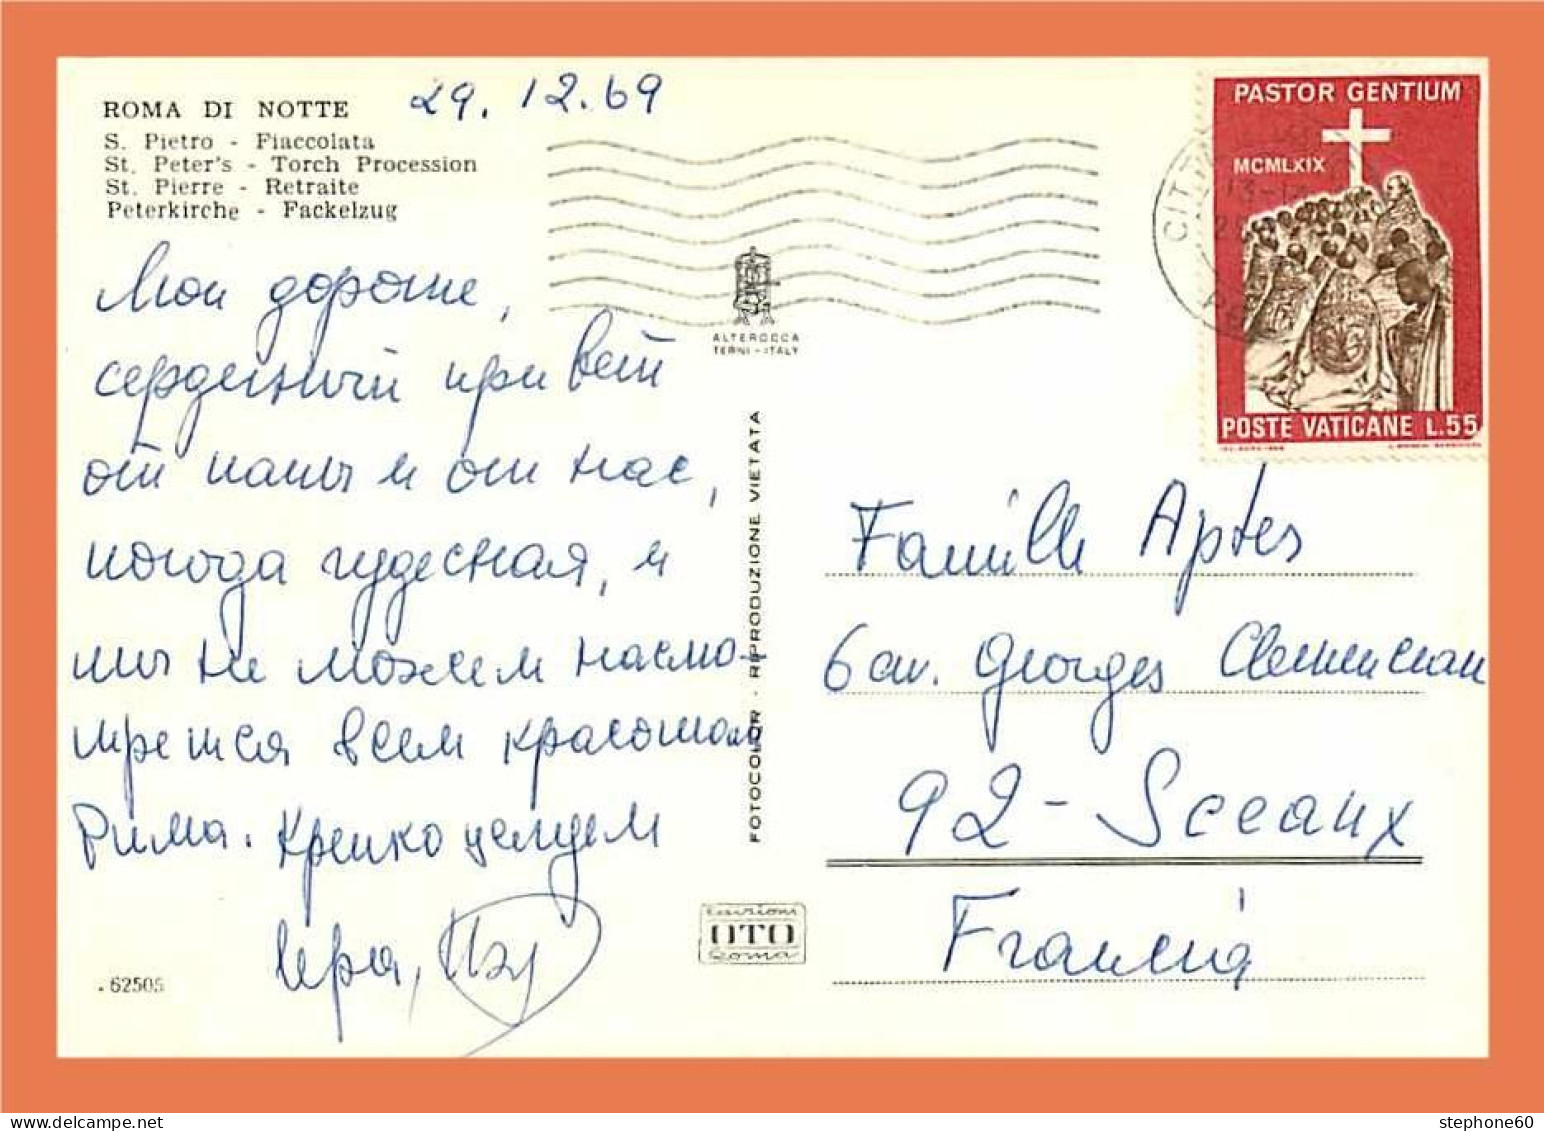 ROMA DI NOTTE
29.12.69
S. Pietro - Fiaccolata
St. Peter's - Torch Procession
St. Pierre - Retraite
Peterkirche - Fackelzug
Мои дорогие,
сердечный привет
от папы и от нас,
погода чудесная, и
мы не можем насмо-
треться всем красотам
Рима. Крепко целуем
Ира,
. 62505
ALTEROCCA
TERNI - ITALY
FOTOCOLOR - RIPRODUZIONE VIETATA
Edizioni
OTO
Roma
PASTOR GENTIUM
MCMLXIX
POSTE VATICANE L.55
CITTA
Famille Aptes
6 av. Georges Clemenceau
92 - Sceaux
Francia
stephone60